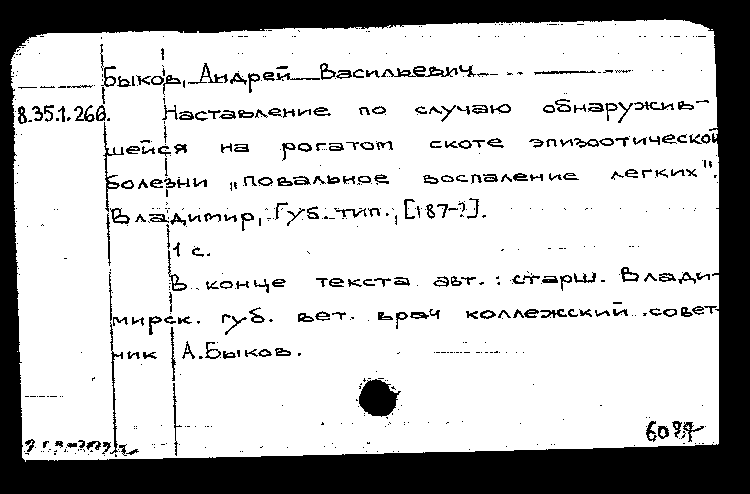 Быков, Андрей Васильевич
8.35.1.266. Наставление по случаю обнаружив-
шейся на рогатом скоте эпизоотической
болезни „повальное воспаление легких".
Владимир, Губ. тип., [187-?].
1 с.
В конце текста авт.: старш. Влади-
мирск. губ. вет. врач коллежский совет-
ник А.Быков.